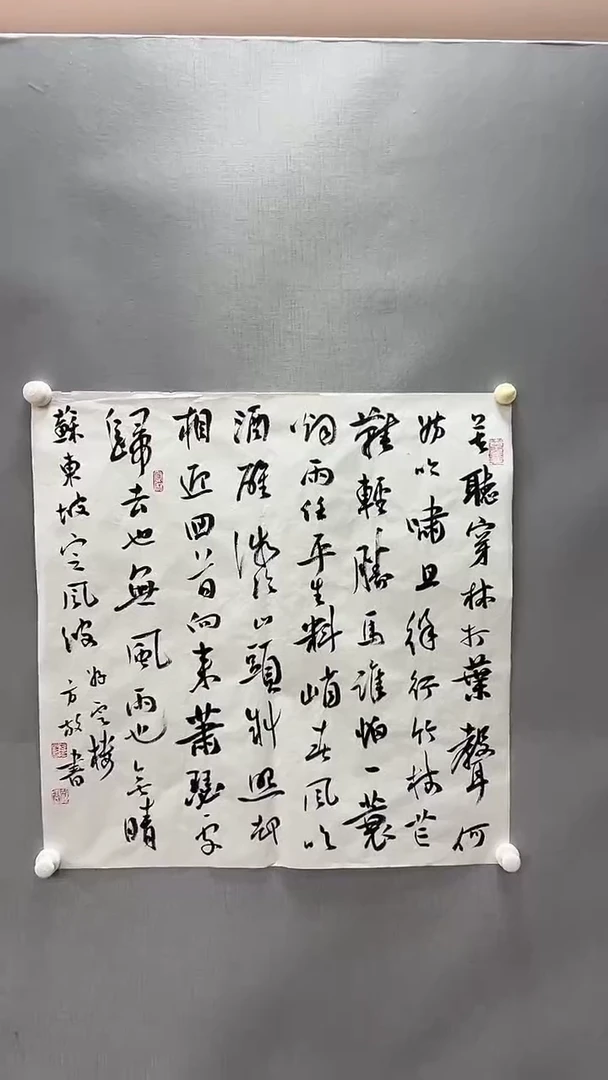 莫聽穿林打葉聲何
妨吟嘯且徐行竹杖芒
鞋輕勝馬誰怕一蓑
烟雨任平生料峭春風吹
酒醒微冷山頭斜照却
相迎回首向來蕭瑟處
歸去也無風雨也無晴
蘇東坡定風波
雲樓
方書